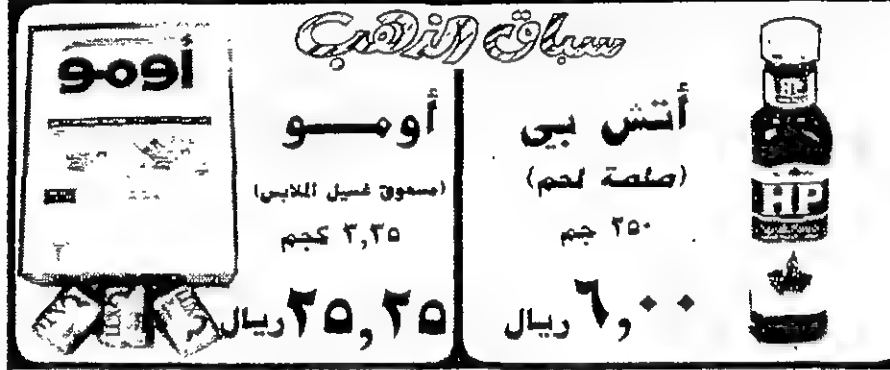 سباق الذهب
أتش بي
(صلصة لحم)
٢٥٠ جم
٦,٠٠ ريال
HP
HP
أومو
(مسحوق غسيل الملابس)
٢,٢٥ كجم
٢٥,٢٥ ريال
أومو
LUX
LUX
LUX